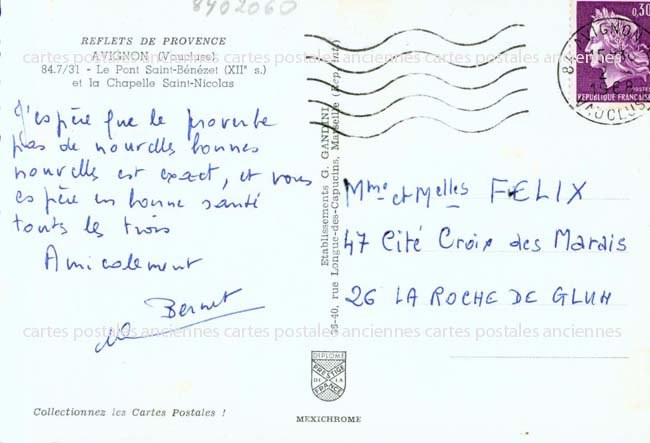 8402060
REFLETS DE PROVENCE
AVIGNON (Vaucluse)
84.7/31 - Le Pont Saint-Bénézet (XIIe s.)
et la Chapelle Saint-Nicolas
J'espère que le proverbe
pas de nouvelles bonnes
nouvelles est exact, et vous
espère en bonne santé
toutes les trois
Amicalement
Bernet
Etablissements G. GANDINI
36-40, rue Longue-des-Capucins, Marseille (Rep. Int.)
0,30
REPUBLIQUE FRANÇAISE
POSTES
84 AVIGNON
1968
VAUCLUSE
Mme et Melles FELIX
47 Cité Croix des Marais
26 LA ROCHE DE GLUN
cartes postales anciennes cartes postales anciennes cartes postales anciennes
cartes postales anciennes cartes postales anciennes cartes postales anciennes
DIPLOME
PRESTIGE
DE LA
FRANCE
Collectionnez les Cartes Postales !
MEXICHROME